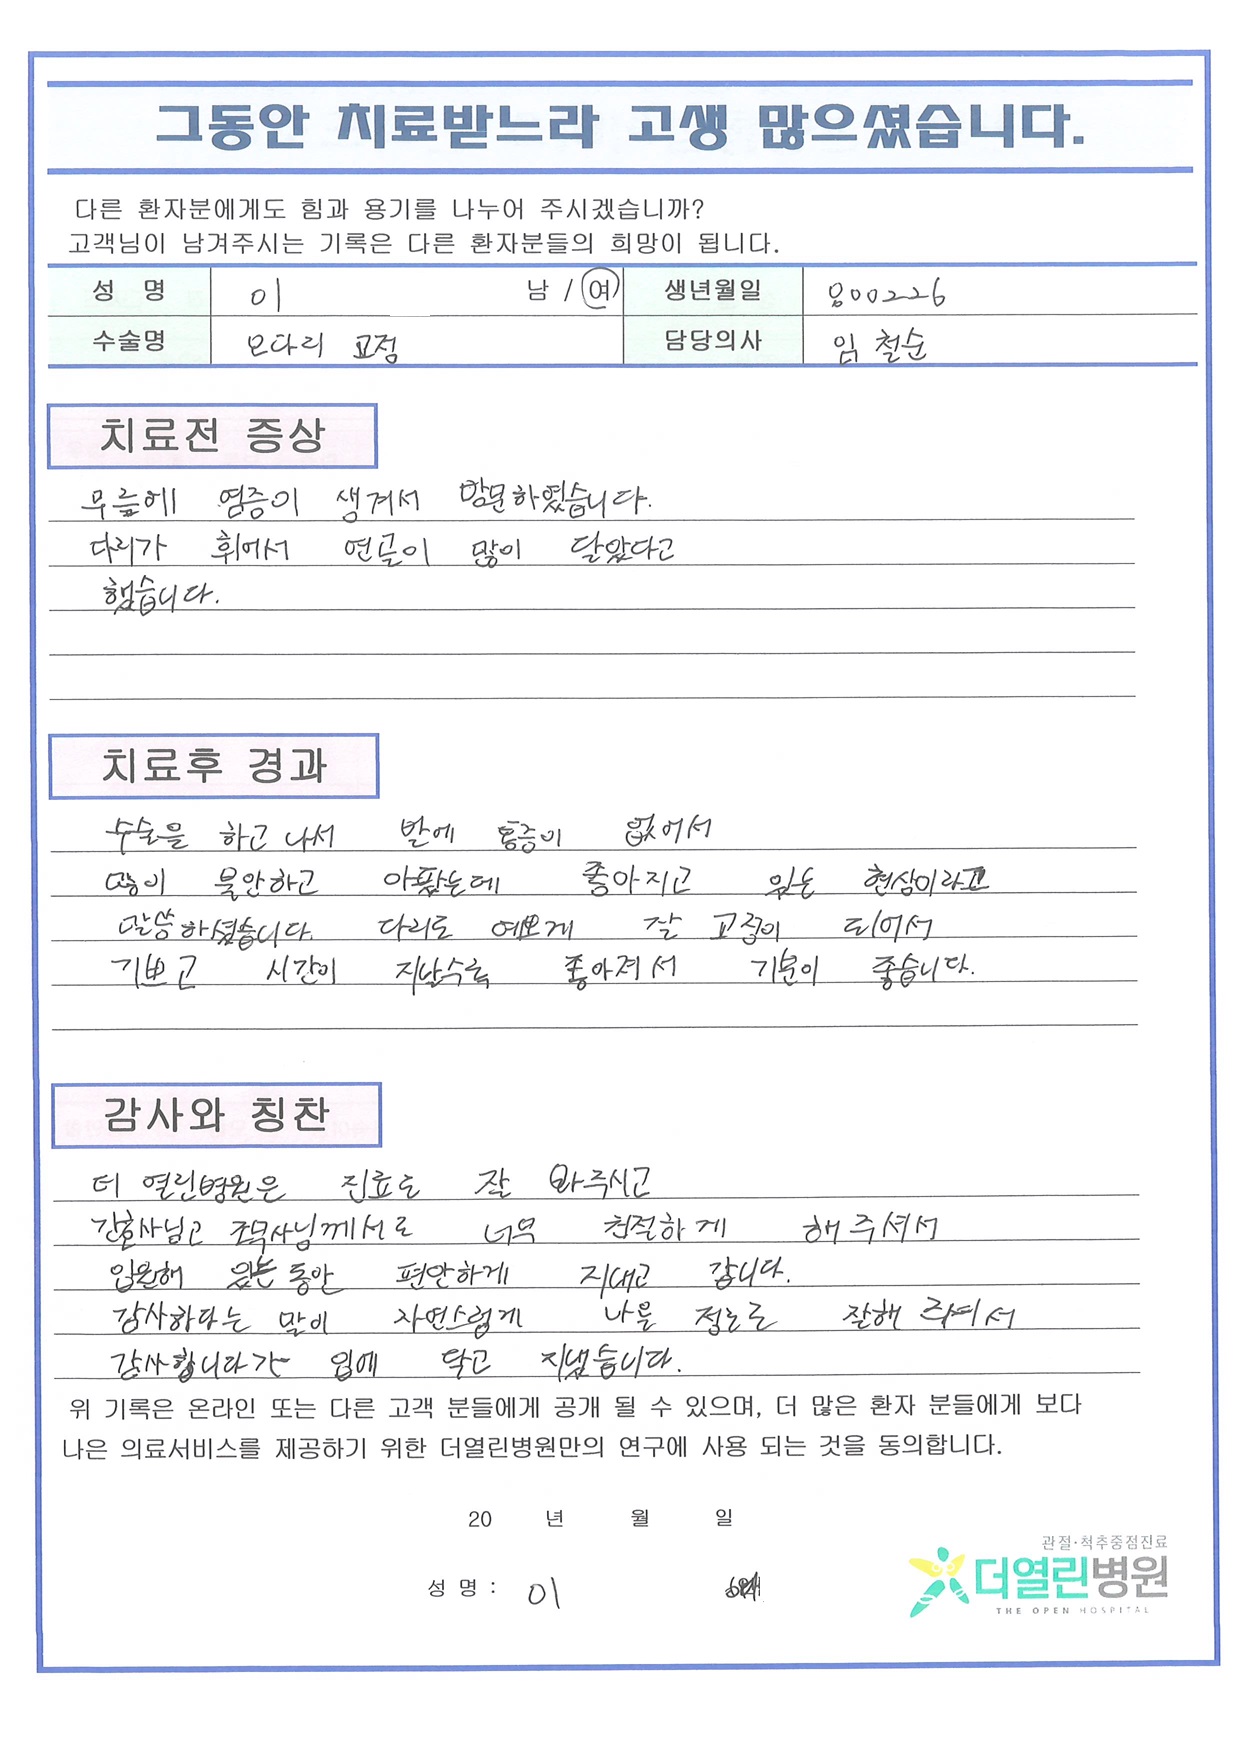 그동안 치료받느라 고생 많으셨습니다.
다른 환자분에게도 힘과 용기를 나누어 주시겠습니까?
고객님이 남겨주시는 기록은 다른 환자분들의 희망이 됩니다.
성 명 이 남 / 여 생년월일 800226
수술명 오다리 교정 담당의사 임 철순
치료전 증상
무릎에 염증이 생겨서 방문하였습니다.
다리가 휘어서 연골이 많이 닳았다고
했습니다.
치료후 경과
수술을 하고 나서 발에 통증이 없어서
많이 불안하고 아팠는데 좋아지고 있는 현상이라고
말씀하셨습니다. 다리도 예쁘게 잘 교정이 되어서
기쁘고 시간이 지날수록 좋아져서 기분이 좋습니다.
감사와 칭찬
더 열린병원은 진료도 잘 봐주시고
간호사님고 조무사님께서도 너무 친절하게 해주셔서
입원해 있는동안 편안하게 지내고 갑니다.
감사하다는 말이 자연스럽게 나올 정도로 잘해 주셔서
감사합니다가 입에 닥고 지냈습니다.
위 기록은 온라인 또는 다른 고객 분들에게 공개 될 수 있으며, 더 많은 환자 분들에게 보다
나은 의료서비스를 제공하기 위한 더열린병원만의 연구에 사용 되는 것을 동의합니다.
20 년 월 일
성 명 : 이
관절·척추중점진료
더열린병원
THE OPEN HOSPITAL